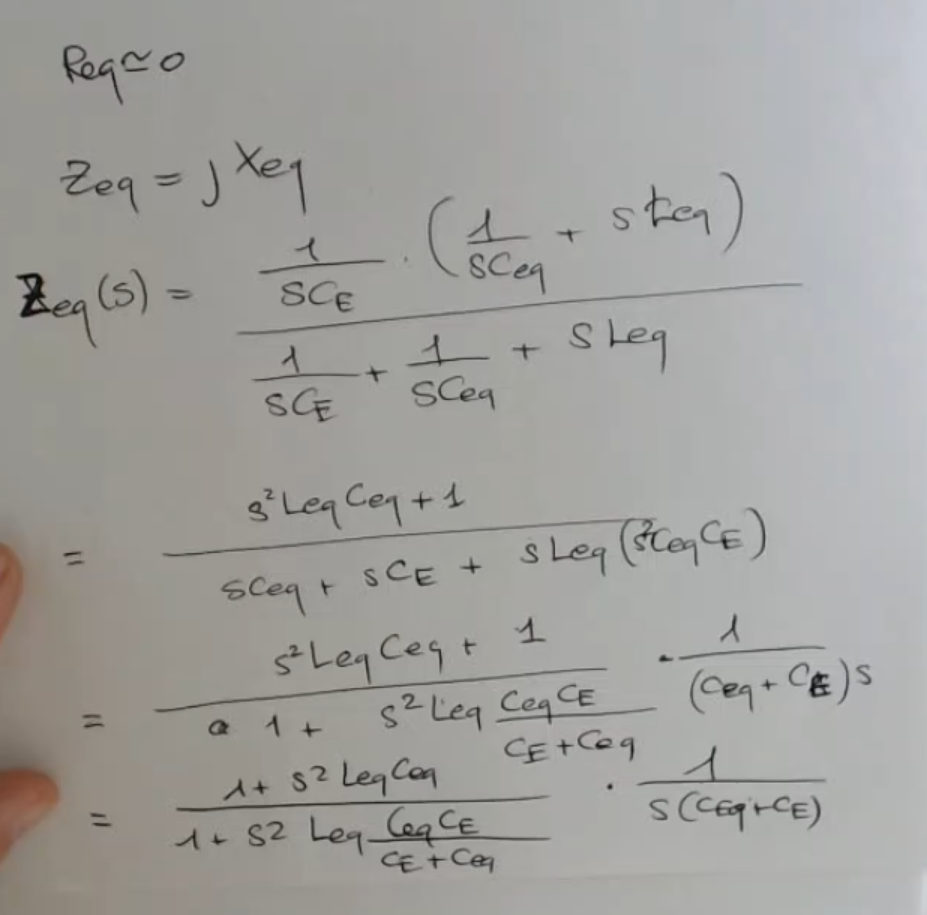 Req ≃ 0
Zeq = j Xeq
Zeq(s) = 1/SCE · (1/SCeq + s Leq) / (1/SCE + 1/SCeq + S Leq)
= (s² Leq Ceq + 1) / (SCeq + SCE + S Leq (s² Ceq CE))
= (s² Leq Ceq + 1) / (1 + s² Leq CeqCE/(CE + Ceq)) · 1/((Ceq + CE)S)
= (1 + s² Leq Ceq) / (1 + s² Leq CeqCE/(CE + Ceq)) · 1/(S(CEq + CE))